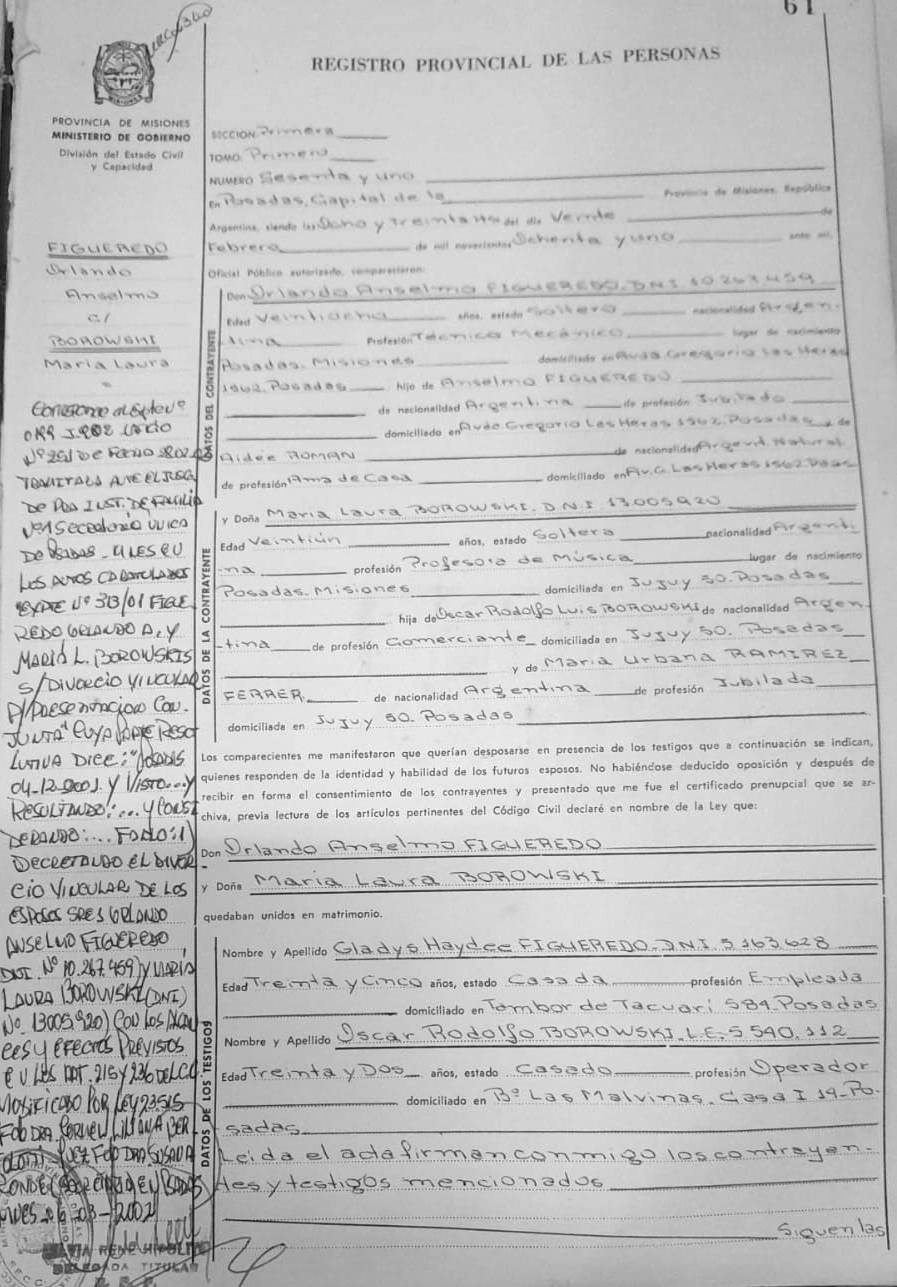 61
REGISTRO PROVINCIAL DE LAS PERSONAS
PROVINCIA DE MISIONES
MINISTERIO DE GOBIERNO
División del Estado Civil
y Capacidad
FIGUEREDO
Orlando
Anselmo
c/
BOROWSKI
Maria Laura
Nº 251 DE FECHO
TRAMITALA ANTE EL JUZG
DE 1ra INST. DE FAMILIA
Nº 1 SECRETARIA UNICA
DE POSADAS -
LOS AUTOS CARATULADOS
EXPTE Nº 313/01 FIGUE
REDO ORLANDO A. Y
MARIA L. BOROWSKI S
S/ DIVORCIO VINCULAR
P/ PRESENTACION CON-
JUNTA" CUYA PARTE RESO
LUTIVA DICE: "POSADAS
04-12-2001. Y VISTO...Y
RESULTANDO:... Y CONSI
DERANDO:... FALLO: 1)
DECRETANDO EL DIVOR
CIO VINCULAR DE LOS
ESPOSOS SRES ORLANDO
ANSELMO FIGUEREDO
DNI. Nº 10.267.459) Y MARIA
LAURA BOROWSKI (DNI)
Nº 13005.920) CON LOS ALCAN
CES Y EFECTOS PREVISTOS
EN LOS ART. 215 Y 236 DEL C.C.
MODIFICADO POR LEY 23515
FDO DRA
JUEZ FDO DRA SUSANA
2002
DELEGADA TITULAR
SECCION Primera
TOMO Primero
NUMERO Sesenta y uno
En Posadas, Capital de la Provincia de Misiones, República
Argentina, siendo las Ocho y treinta Hs del día Veinte de
Febrero de mil novecientos Ochenta y uno ante mí,
Oficial Público autorizado, comparecieron:
DATOS DEL CONTRAYENTE
Don Orlando Anselmo FIGUEREDO. D.N.I 10.267.459
Edad Veintiocho años, estado Soltero nacionalidad Argen-
tina Profesión Técnico Mecánico lugar de nacimiento
Posadas. Misiones domiciliado en Avda Gregorio Las Heras
1562. Posadas hijo de Anselmo FIGUEREDO
de nacionalidad Argentina de profesión Jubilado
domiciliado en Avda. Gregorio Las Heras 1562. Posadas y de
Aidée ROMAN de nacionalidad Argent. Natural
de profesión Ama de Casa domiciliado en Av. G. Las Heras 1562
DATOS DE LA CONTRAYENTE
y Doña Maria Laura BOROWSKI. D.N.I 13.005.920
Edad Veintiún años, estado Soltera nacionalidad Argenti-
na profesión Profesora de Música lugar de nacimiento
Posadas. Misiones domiciliada en Jujuy 50. Posadas
hija de Oscar Rodolfo Luis BOROWSKI de nacionalidad Argen
tina de profesión Comerciante domiciliada en Jujuy 50. Posadas
y de Maria Urbana RAMIREZ
FERRER. de nacionalidad Argentina de profesión Jubilada
domiciliada en Jujuy 50. Posadas
Los comparecientes me manifestaron que querían desposarse en presencia de los testigos que a continuación se indican,
quienes responden de la identidad y habilidad de los futuros esposos. No habiéndose deducido oposición y después de
recibir en forma el consentimiento de los contrayentes y presentado que me fue el certificado prenupcial que se ar-
chiva, previa lectura de los artículos pertinentes del Código Civil declaré en nombre de la Ley que:
Don Orlando Anselmo FIGUEREDO
y Doña Maria Laura BOROWSKI
quedaban unidos en matrimonio.
DATOS DE LOS TESTIGOS
Nombre y Apellido Gladys Haydee FIGUEREDO. D.N.I. 5 163.628
Edad Treinta y Cinco años, estado Casada profesión Empleada
domiciliado en Tambor de Tacuarí 584. Posadas
Nombre y Apellido Oscar Rodolfo BOROWSKI. L.E. 5 540.112
Edad Treinta y Dos años, estado Casado profesión Operador
domiciliado en Bº Las Malvinas. Casa I 14-Po-
sadas
Leida el acta firman conmigo los contrayen-
tes y testigos mencionados
Siguen las